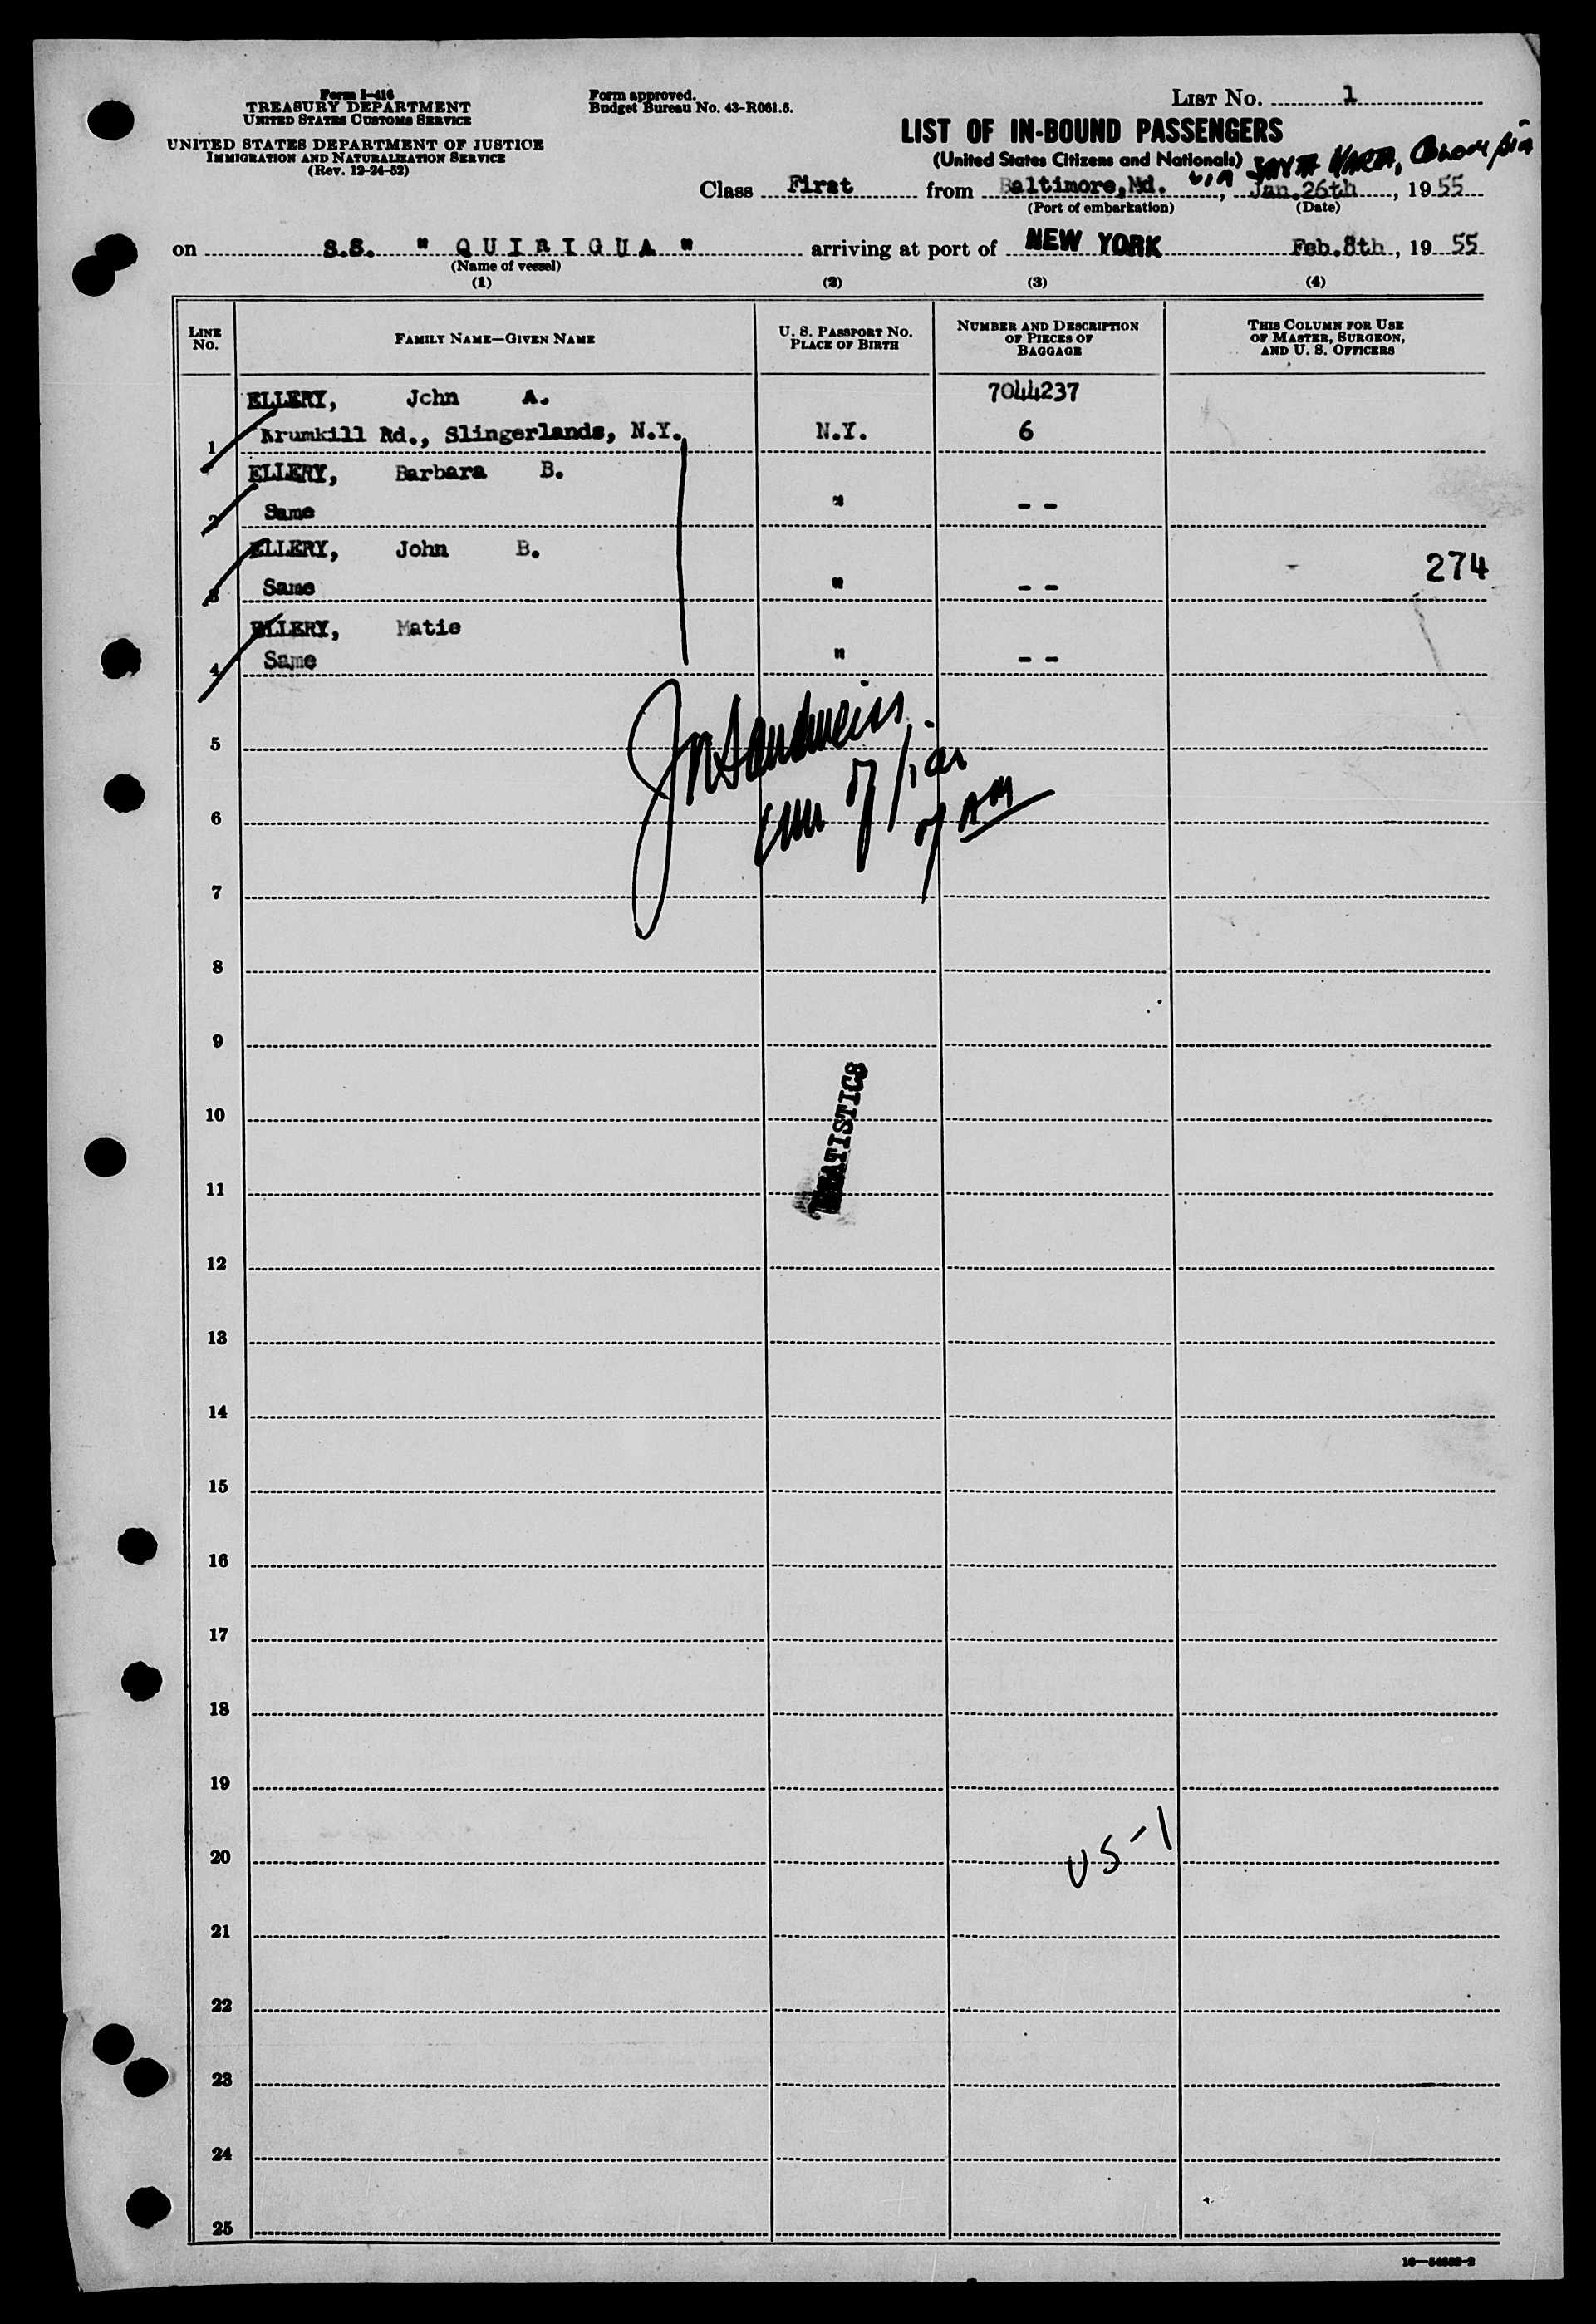 Form I-416
TREASURY DEPARTMENT
UNITED STATES CUSTOMS SERVICE
UNITED STATES DEPARTMENT OF JUSTICE
IMMIGRATION AND NATURALIZATION SERVICE
(Rev. 12-24-52)
Form approved.
Budget Bureau No. 43-R061.5.
LIST NO. 1
LIST OF IN-BOUND PASSENGERS
(United States Citizens and Nationals)
via SANTA MARTA, Colombia
Class First from Baltimore, Md., Jan. 26th, 1955
(Port of embarkation) (Date)
on S.S. " Q U I R I G U A " arriving at port of NEW YORK Feb. 8th, 1955
(Name of vessel)
(1) (2) (3) (4)
LINE NO. FAMILY NAME—GIVEN NAME U. S. PASSPORT NO. PLACE OF BIRTH NUMBER AND DESCRIPTION OF PIECES OF BAGGAGE THIS COLUMN FOR USE OF MASTER, SURGEON, AND U. S. OFFICERS
ELLERY, John A. 7044237
1 Krumkill Rd., Slingerlands, N.Y. N.Y. 6
ELLERY, Barbara B.
2 Same " - -
ELLERY, John B. 274
3 Same " - -
ELLERY, Matie
4 Same " - -
5
6
7
8
9
10
STATISTICS
11
12
13
14
15
16
17
18
19
20 US-1
21
22
23
24
25